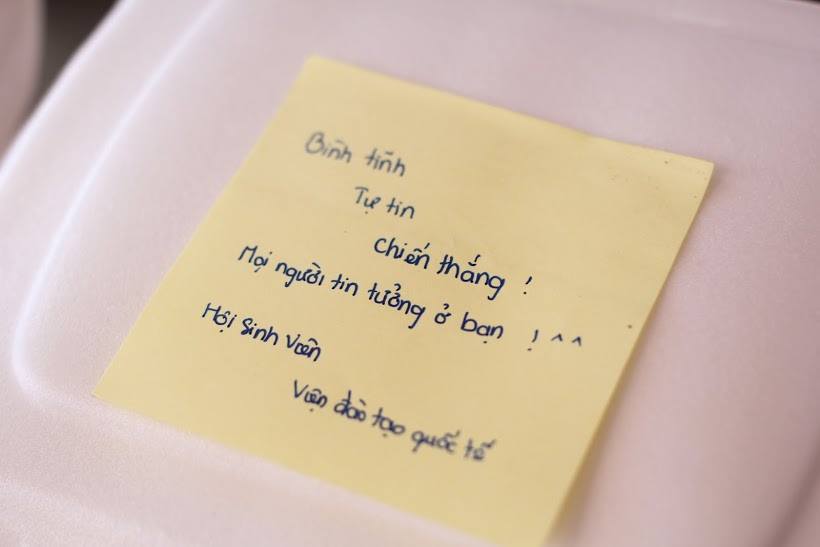 Bình tĩnh
Tự tin
Chiến thắng !
Mọi người tin tưởng ở bạn ! ^^
Hội Sinh Viên
Viện đào tạo quốc tế